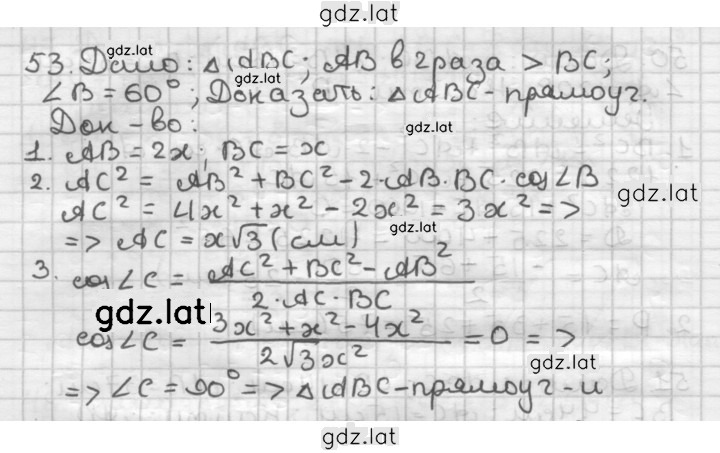 gdz.lat
53. Дано: △ABC; AB в 2 раза > BC;
gdz.lat
∠B = 60°; Доказать: △ABC - прямоуг.
gdz.lat
Док - во:
gdz.lat
1. AB = 2x; BC = x
2. AC² = AB² + BC² - 2·AB·BC·cos∠B
gdz.lat
AC² = 4x² + x² - 2x² = 3x² =>
=> AC = x√3 (см)
gdz.lat
3. cos∠C = (AC² + BC² - AB²) / (2·AC·BC)
gdz.lat
cos∠C = (3x² + x² - 4x²) / (2√3x²) = 0 =>
gdz.lat
=> ∠C = 90° => △ABC - прямоуг - й
gdz.lat